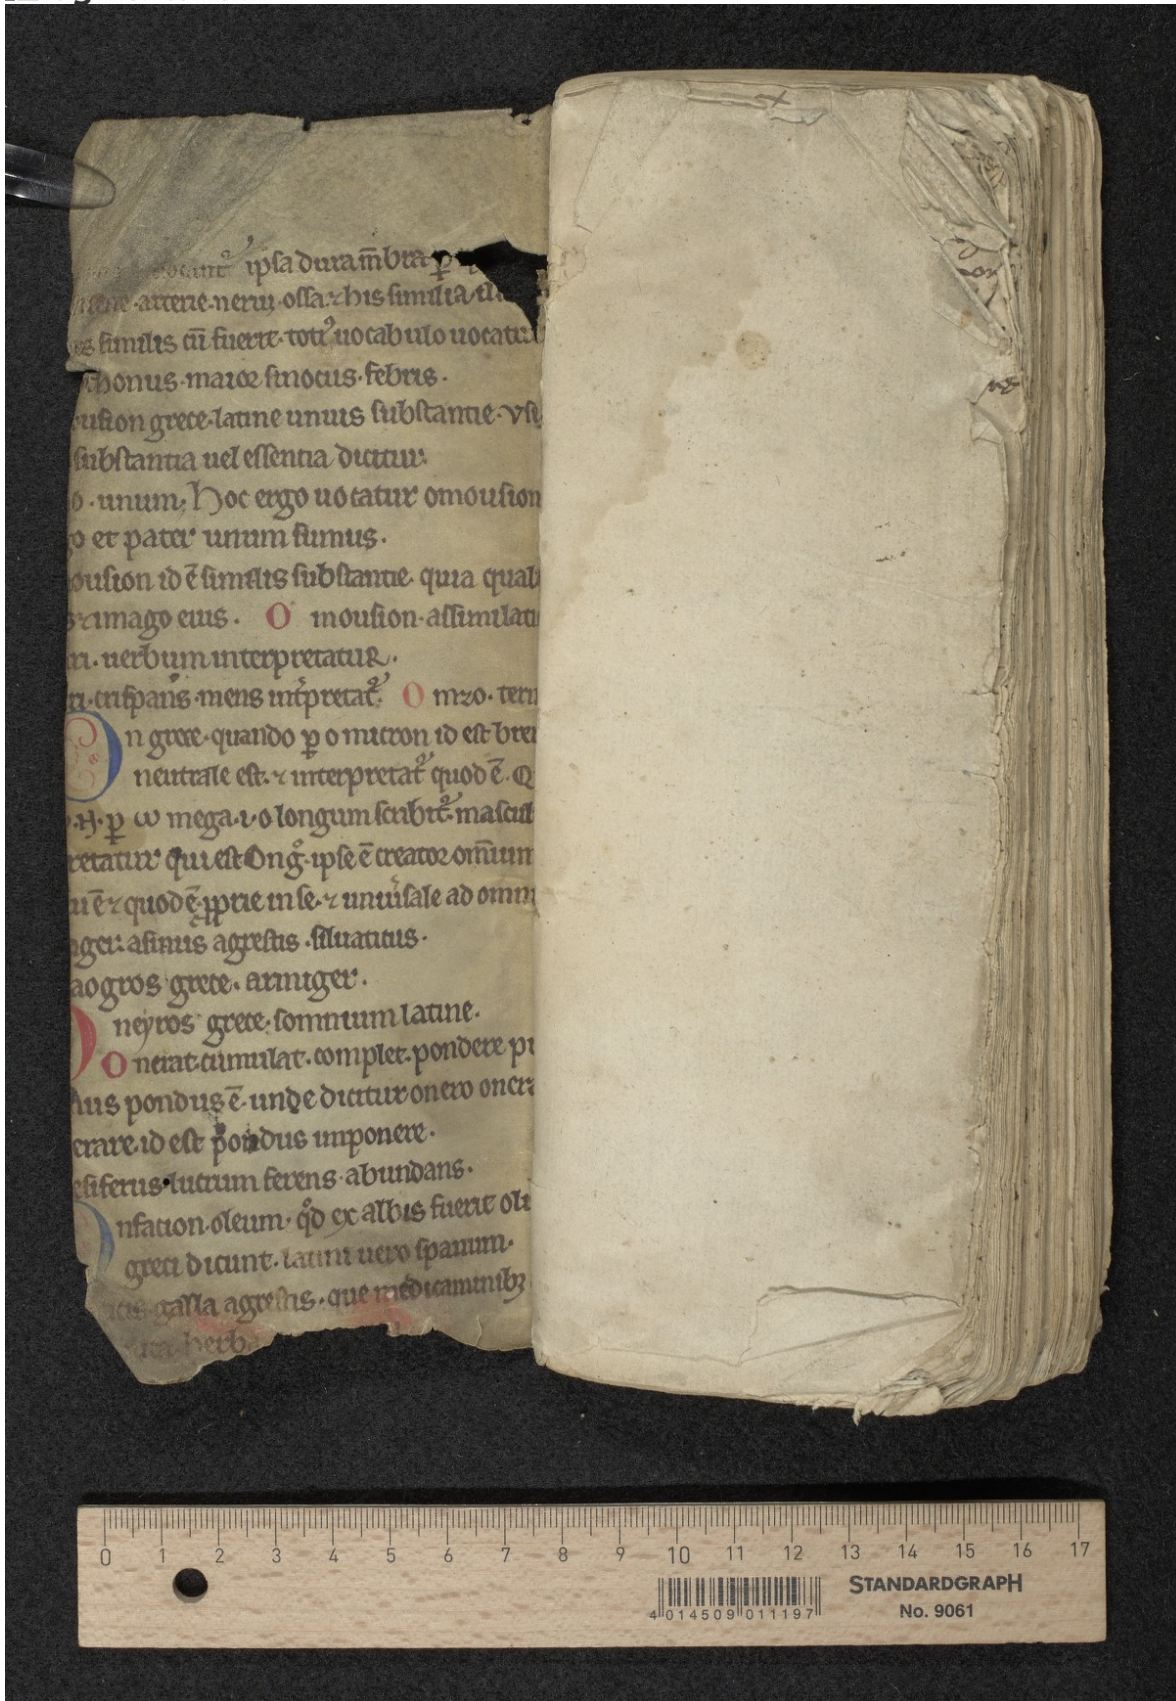 ipsa dura m̄bra ꝑ
arterie· neruı· ossa· ⁊ his similia
similis cū fuerit· totꝰ uocabulo uocatur
honus· maior sinocus· febris·
usion grece· latine unius substantie· vsi
substantia uel essentia dicitur·
o· unum; hoc ergo uocatur omousion
o et pater unum sumus·
ousion id ē similis substantie· quia quali
s ⁊ imago eius· O mousion· assimilati
ri· uerbum interpretatur·
mens int̄pretat᷒· O mzo·
n grece· quando ꝑ o micron id est breu
neutrale est· ⁊ interpretat᷒ quod ē· Q
ꝑ ω mega· ı· o longum scribit᷒· mascul
retatur qui est On g̊· ipse ē creator om̄ium
ē ⁊ quod ē ꝓprie in se· ⁊ uniūsale ad omn
ager· asinus agrestis· siluaticus·
aogros grece· armiger·
neyros grece· somnium latine·
O nerat· cumulat· complet· pondere
pondus ē· unde dicitur onero onera
erare· id est pondus imponere·
siferus· lucrum ferens· abundans·
nfation· oleum· qd̊ ex albis fuerit oli
greci dicunt· latini uero spanum·
galla agrestis· que medicaminibꝫ
herba
0 1 2 3 4 5 6 7 8 9 10 11 12 13 14 15 16 17
STANDARDGRAPH
4 014509 011197
No. 9061